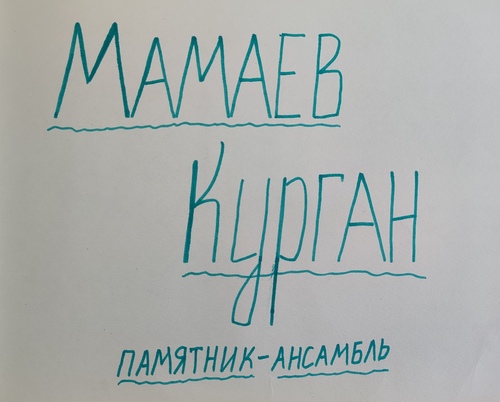 Мамаев
Курган
памятник-ансамбль